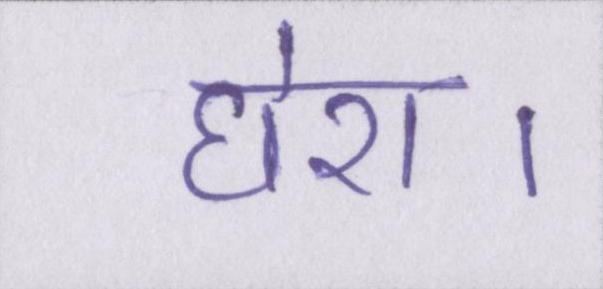 घेरा ।